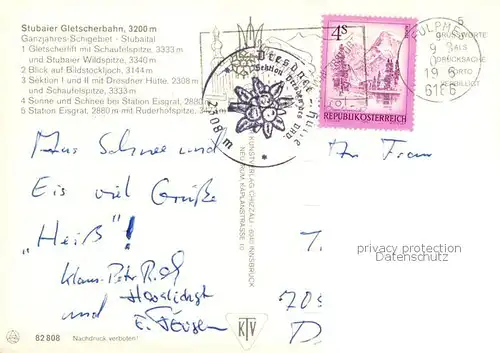 Stubaier Gletscherbahn, 3200 m
Ganzjahres-Schigebiet - Stubaital
1 Gletscherlift mit Schaufelspitze, 3333 m
und Stubaier Wildspitze, 3340 m
2 Blick auf Bildstöckljoch, 3144 m
3 Sektion I und II mit Dresdner Hütte, 2308 m
und Schaufelspitze, 3333 m
4 Sonne und Schnee bei Station Eisgrat, 2880 m
5 Station Eisgrat, 2880 m mit Ruderhofspitze,
Aus Schnee und
Eis viel Grüße
"Heiß"!
Klaus-Peter
und
E.
82 808 Nachdruck verboten!
KUNSTVERLAG CHIZZALI · 6040 INNSBRUCK
NEURUM KAPLANSTRASSE 10
KTV
Dresdner-Hütte
Sektion Dresden des DAV.
2308 m
4S
REPUBLIK ÖSTERREICH
FULPMES
19
6166
GRUSSWORTE
ALS
DRUCKSACHE
PORTO
An Fam
T.
70
D
privacy protection
Datenschutz